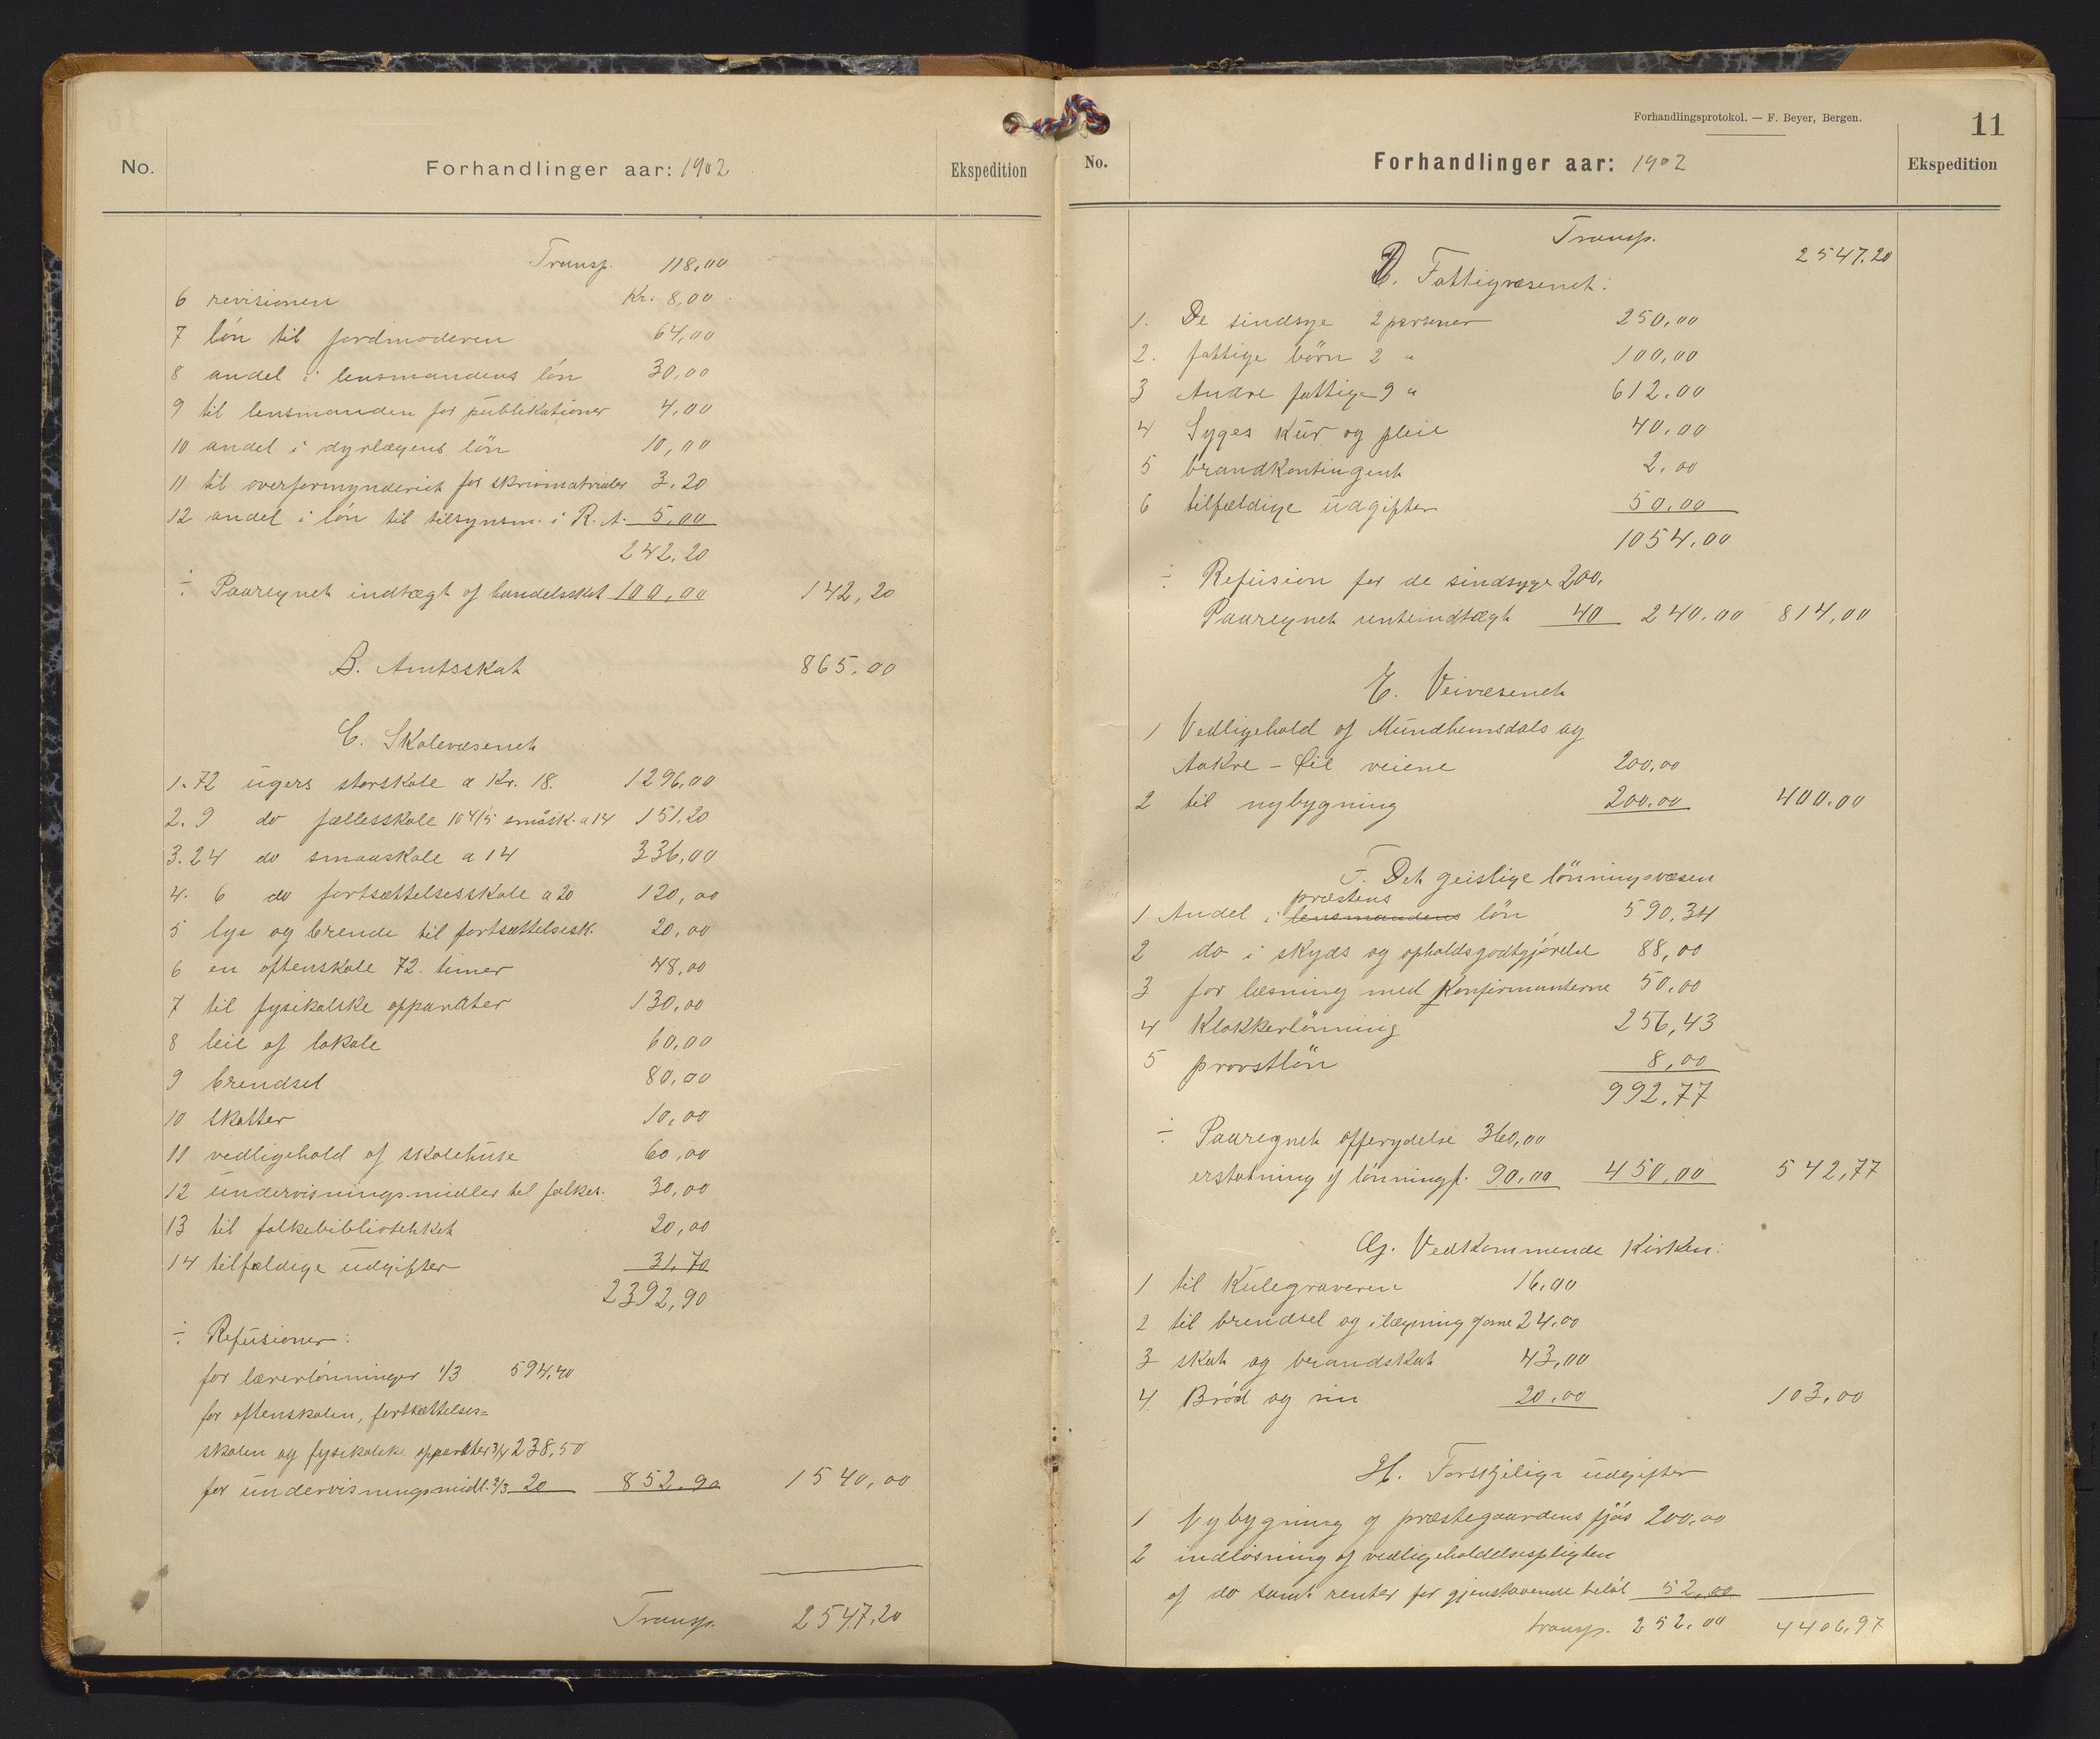 No. Forhandlinger aar: 1902 Ekspedition
Transp. 118,00
6 revisionen Kr. 8,00
7 løn til jordmoderen 64,00
8 andel i lensmandens løn 30,00
9 til lensmanden for publikationer 4,00
10 andel i dyrlægens løn 10,00
11 til overformynderiet for skrivmatrialer 3.20
12 andel i løn til tilsynsm. i R. A. 5,00
242,20
÷ Paaregnet indtægt af handelsskat 100,00 142,20
B. Amtsskat 865,00
C. Skolevæsenet
1. 72 ugers storskole a Kr. 18. 1296,00
2. 9 do fællesskole 10 4/5 småsk. a 14 151,20
3. 24 do smaaskole a 14 336,00
4. 6 do fortsættelsesskole a 20 120,00
5 lys og brende til fortsættelsesk. 20,00
6 en aftenskole 72 timer 48,00
7 til fysikalske apparater 130,00
8 leie af lokale 60,00
9 brendsel 80,00
10 skatter 10,00
11 vedligehold af skolehuse 60,00
12 undervisningsmidler til folkes. 30,00
13 til folkebibliotekket 20,00
14 tilfældige udgifter 31,70
2392,90
÷ Refusioner:
for lærerlønninger 1/3 594,40
for aftenskolen, fortsættelses=
skolen og fysikalske apparater 3/4 238,50
for undervisningsmidl. 2/3 20 852.90 1540,00
Transp. 2547,20
Forhandlingsprotokol. — F. Beyer, Bergen.
11
No. Forhandlinger aar: 1902 Ekspedition
Transp. 2547.20
D. Fattigvæsenet:
1. De sindsye 2 personer 250,00
2. fattige børn 2 " 100,00
3 Andre fattige 9 " 612,00
4 Syges kur og pleie 40,00
5 brandkontingent 2,00
6 tilfældige udgifter 50,00
1054,00
÷ Refusion for de sindsyge 200,
Paaregnet renteindtægt 40 240,00 814,00
E. Veivæsenet
1 Vedligehold af Mundhemsdals og
Aakre - Eie veiene 200,00
2 til nybygning 200.00 400.00
F. Det geistige lønningsvæsen
præstens
1 Andel i lensmandens løn 590,34
2 do i skyds og opholdsgodtgjørelse 88,00
3 for læsning med Konfirmanterne 50,00
4 Klokkerlønning 256,43
5 provstløn 8,00
992,77
÷ Paaregnet offerydelse 360,00
erstatning af lønningsf. 90,00 450,00 542,77
G. Vedkommende Kirken:
1 til Kulegraveren 16,00
2 til brendsel og ilægning 24,00
3 skat og brandskat 43,00
4 Brød og vin 20,00 103,00
H. Forskjelige udgifter
1 Nybygning af præstegaardens fjøs 200,00
2 indløsning af vedligeholdelsespligten
af do samt renter for gjenstaaende beløb 52,00
transp. 252,00 4406,97